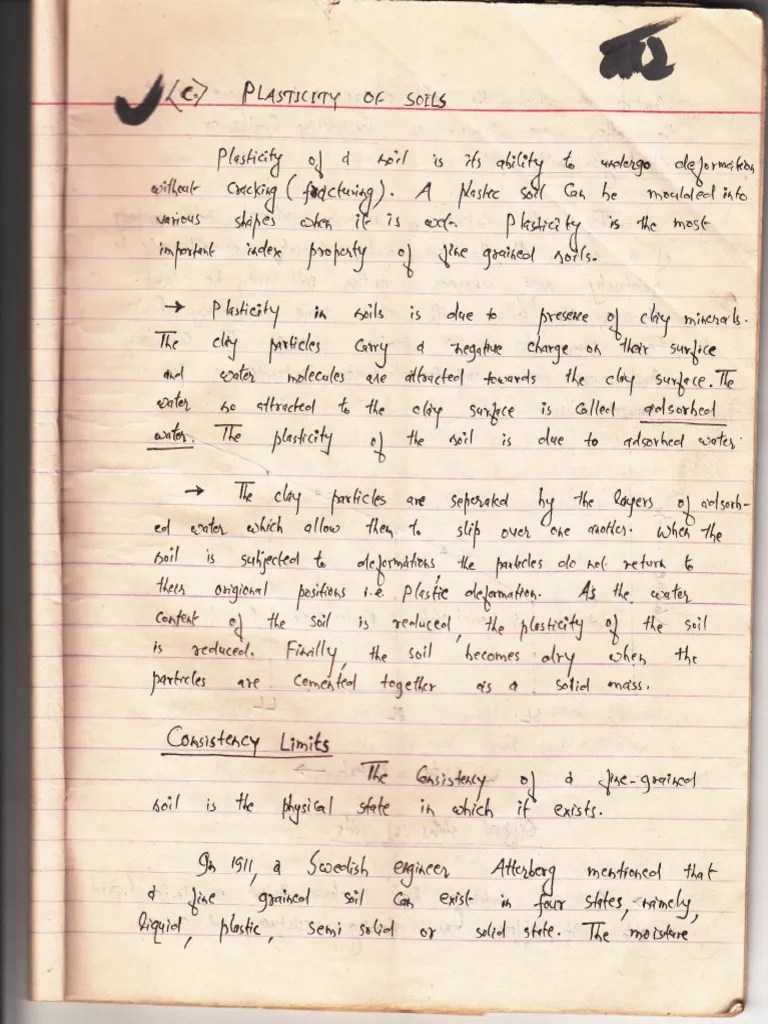 (C.) PLASTICITY OF SOILS
Plasticity of a soil is its ability to undergo deformation
without cracking (fracturing). A plastic soil can be moulded into
various shapes when it is wet. Plasticity is the most
important index property of fine grained soils.
→ Plasticity in soils is due to presence of clay minerals.
The clay particles carry a negative charge on their surface
and water molecules are attracted towards the clay surface. The
water so attracted to the clay surface is called adsorbed
water. The plasticity of the soil is due to adsorbed water.
→ The clay particles are seperated by the layers of adsorb-
ed water which allow them to slip over one another. When the
soil is subjected to deformations, the particles do not return to
their origional positions i.e. plastic deformation. As the water
content of the soil is reduced, the plasticity of the soil
is reduced. Finally, the soil becomes dry when the
particles are cemented together as a solid mass.
Consistency Limits
The Consistency of a fine-grained
soil is the physical state in which it exists.
In 1911, a Swedish engineer Atterberg mentioned that
a fine grained soil can exist in four states, namely,
liquid, plastic, semi solid or solid state. The moisture